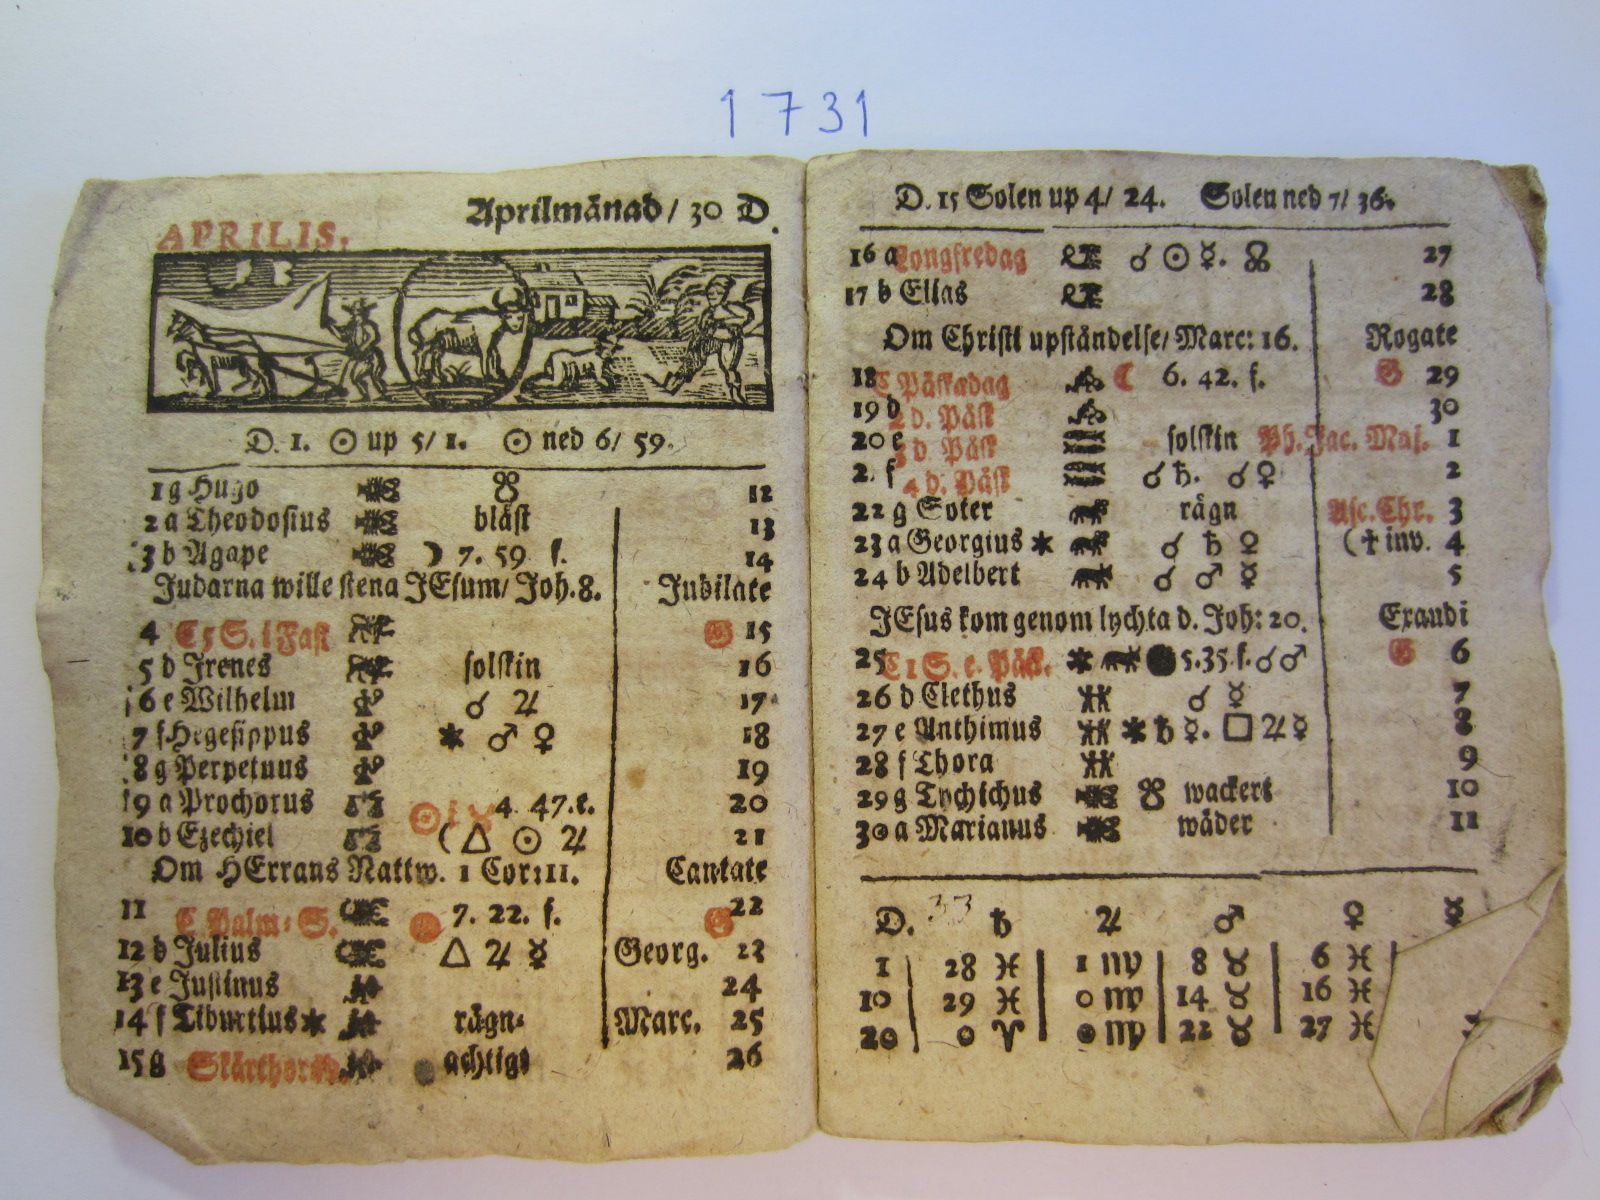 1731
Aprilmånad/ 30 D.
APRILIS.
D. 1. ☉ up 5/ 1. ☉ ned 6/ 59.
1 g Hugo ☋ 12
2 a Theodosius blåst 13
3 b Agape ☽ 7. 59. f. 14
Judarna wille stena JEsum/ Joh. 8. Jubilate
4 C 5 S. i Fast G 15
5 d Irenes solskin 16
6 e Wilhelm ☌ ♃ 17
7 f Hegesippus ⚹ ♂ ♀ 18
8 g Perpetuus 19
9 a Prochorus ☉ i ♉ 4. 47. e. 20
10 b Ezechiel ( △ ☉ ♃ 21
Om HErrans Nattw. 1 Cor: 11. Cantate
11 C Palm-S. 7. 22. f. G 22
12 d Julius △ ♃ ☿ Georg. 23
13 e Justinus 24
14 f Tiburtius ⚹ rägn- Marc. 25
15 g Skärthorsd. achtigt 26
D. 15 Solen up 4/ 24. Solen ned 7/ 36.
16 a Longfredag ☌ ☉ ☿. ☊ 27
17 b Elias 28
Om Christi upståndelse/ Marc: 16. Rogate
18 C Påskadag ☾ 6. 42. f. G 29
19 d 2 d. Påsk 30
20 e 3 d. Påsk solskin Ph. Jac. Maj. 1
2. f 4 d. Påsk ☌ ♄. ☌ ♀ 2
22 g Soter rägn Asc. Chr. 3
23 a Georgius ⚹ ☌ ♄ ♀ († inv. 4
24 b Adelbert ☌ ♂ ☿ 5
JEsus kom genom lychta d. Joh: 20. Exaudi
25 C 1 S. e. Påsk. ⚹ ● 5. 35. f. ☌ ♂ G 6
26 d Clethus ☌ ☿ 7
27 e Anthimus ⚹ ♄ ☿. □ ♃ ☿ 8
28 f Thora 9
29 g Tychichus ☋ wackert 10
30 a Marianus wäder 11
D. 33 ♄ ♃ ♂ ♀ ☿
1 28 ♓ 1 ♍ 8 ♉ 6 ♓
10 29 ♓ 0 ♍ 14 ♉ 16 ♓
20 0 ♈ 0 ♍ 22 ♉ 27 ♓